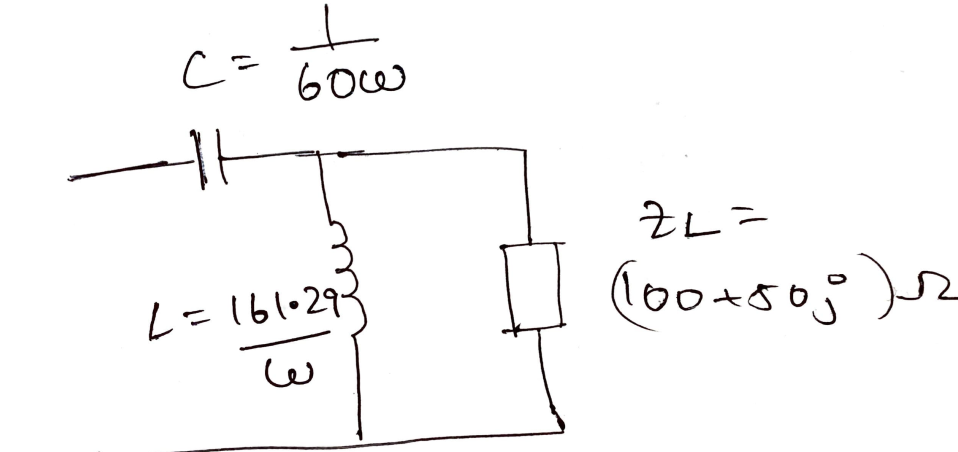 C = 1/60ω
L = 161.29/ω
ZL =
(100+50j)Ω